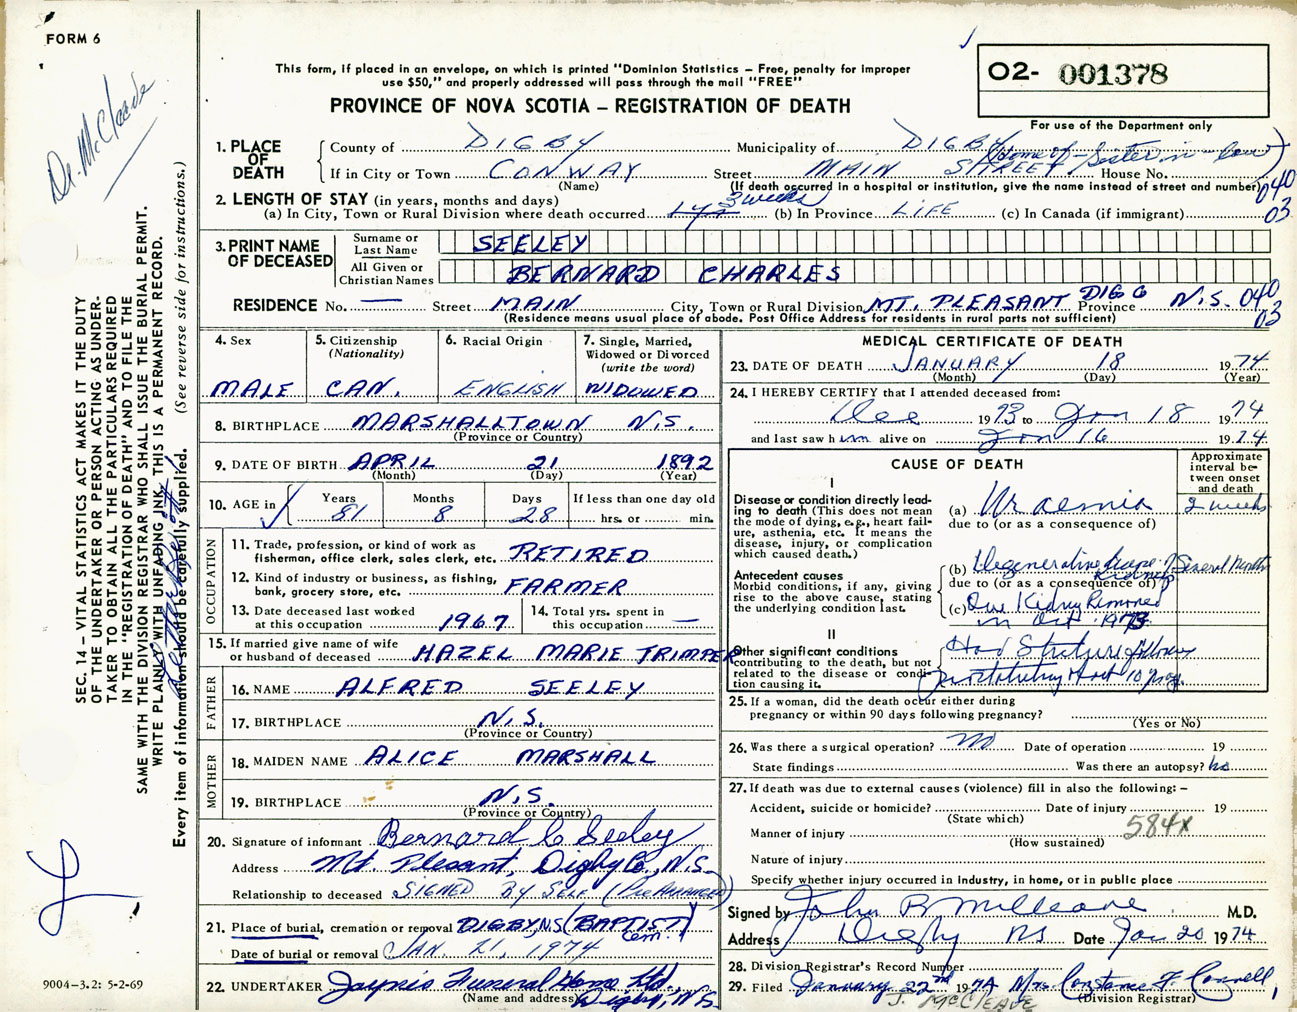 FORM 6
Dr. McCleave
This form, if placed in an envelope, on which is printed "Dominion Statistics – Free, penalty for improper
use $50," and properly addressed will pass through the mail "FREE"
PROVINCE OF NOVA SCOTIA – REGISTRATION OF DEATH
O2- 001378
For use of the Department only
1. PLACE OF DEATH
County of DIGBY Municipality of DIGBY
(Home of Sister-in-law)
If in City or Town CONWAY Street MAIN STREET House No.
(Name) (If death occurred in a hospital or institution, give the name instead of street and number)
040
03
2. LENGTH OF STAY (in years, months and days)
3 weeks
(a) In City, Town or Rural Division where death occurred (b) In Province LIFE (c) In Canada (if immigrant)
3. PRINT NAME OF DECEASED
Surname or Last Name SEELEY
All Given or Christian Names BERNARD CHARLES
RESIDENCE No. — Street MAIN City, Town or Rural Division MT. PLEASANT DIG G Province N.S. 040
03
(Residence means usual place of abode. Post Office Address for residents in rural parts not sufficient)
4. Sex
MALE
5. Citizenship
(Nationality)
CAN.
6. Racial Origin
ENGLISH
7. Single, Married,
Widowed or Divorced
(write the word)
WIDOWED
8. BIRTHPLACE MARSHALLTOWN N.S.
(Province or Country)
9. DATE OF BIRTH APRIL 21 1892
(Month) (Day) (Year)
10. AGE in Years Months Days If less than one day old
81 8 28 hrs. or min.
OCCUPATION
11. Trade, profession, or kind of work as
fisherman, office clerk, sales clerk, etc. RETIRED
12. Kind of industry or business, as fishing,
bank, grocery store, etc. FARMER
13. Date deceased last worked
at this occupation 1967
14. Total yrs. spent in
this occupation —
15. If married give name of wife
or husband of deceased HAZEL MARIE TRIMPER
FATHER
16. NAME ALFRED SEELEY
17. BIRTHPLACE N.S.
(Province or Country)
MOTHER
18. MAIDEN NAME ALICE MARSHALL
19. BIRTHPLACE N.S.
(Province or Country)
20. Signature of informant Bernard C Seeley
Address Mt. Pleasant, Digby Co., N.S.
Relationship to deceased SIGNED BY SELF (Pre ARRANGED)
21. Place of burial, cremation or removal DIGBY, N.S. (BAPTIST) Cem.
Date of burial or removal JAN. 21, 1974
22. UNDERTAKER Jaynes Funeral Home Ltd.
(Name and address) Digby, N.S.
MEDICAL CERTIFICATE OF DEATH
23. DATE OF DEATH JANUARY 18 1974
(Month) (Day) (Year)
24. I HEREBY CERTIFY that I attended deceased from:
Dec 1973 to Jan 18 1974
and last saw him alive on Jan 16 1974
CAUSE OF DEATH
Approximate
interval be-
tween onset
and death
I
Disease or condition directly lead-
ing to death (This does not mean
the mode of dying, e.g., heart fail-
ure, asthenia, etc. It means the
disease, injury, or complication
which caused death.)
(a) Uraemia 2 weeks
due to (or as a consequence of)
Antecedent causes
Morbid conditions, if any, giving
rise to the above cause, stating
the underlying condition last.
(b) Degenerative disease of Kidneys Several Months
due to (or as a consequence of)
(c) One Kidney Removed
in Oct 1973
II
Other significant conditions
contributing to the death, but not
related to the disease or condi-
tion causing it.
Had Stricture following
25. If a woman, did the death occur either during
pregnancy or within 90 days following pregnancy?
(Yes or No)
26. Was there a surgical operation? no Date of operation 19
State findings Was there an autopsy? no
27. If death was due to external causes (violence) fill in also the following: –
Accident, suicide or homicide? Date of injury 19
(State which)
584x
Manner of injury
(How sustained)
Nature of injury
Specify whether injury occurred in industry, in home, or in public place
Signed by John R McCleave M.D.
Address Digby NS Date Jan 20 1974
28. Division Registrar's Record Number
29. Filed January 22nd 1974 Mrs. Constance F. Connell
J. McCLEAVE (Division Registrar)
SEC. 14 – VITAL STATISTICS ACT MAKES IT THE DUTY
OF THE UNDERTAKER OR PERSON ACTING AS UNDER-
TAKER TO OBTAIN ALL THE PARTICULARS REQUIRED
IN THE "REGISTRATION OF DEATH" AND TO FILE THE
SAME WITH THE DIVISION REGISTRAR WHO SHALL ISSUE THE BURIAL PERMIT.
WRITE PLAINLY WITH UNFADING INK. THIS IS A PERMANENT RECORD.
Every item of information should be carefully supplied. (See reverse side for instructions.)
9004-3.2: 5-2-69